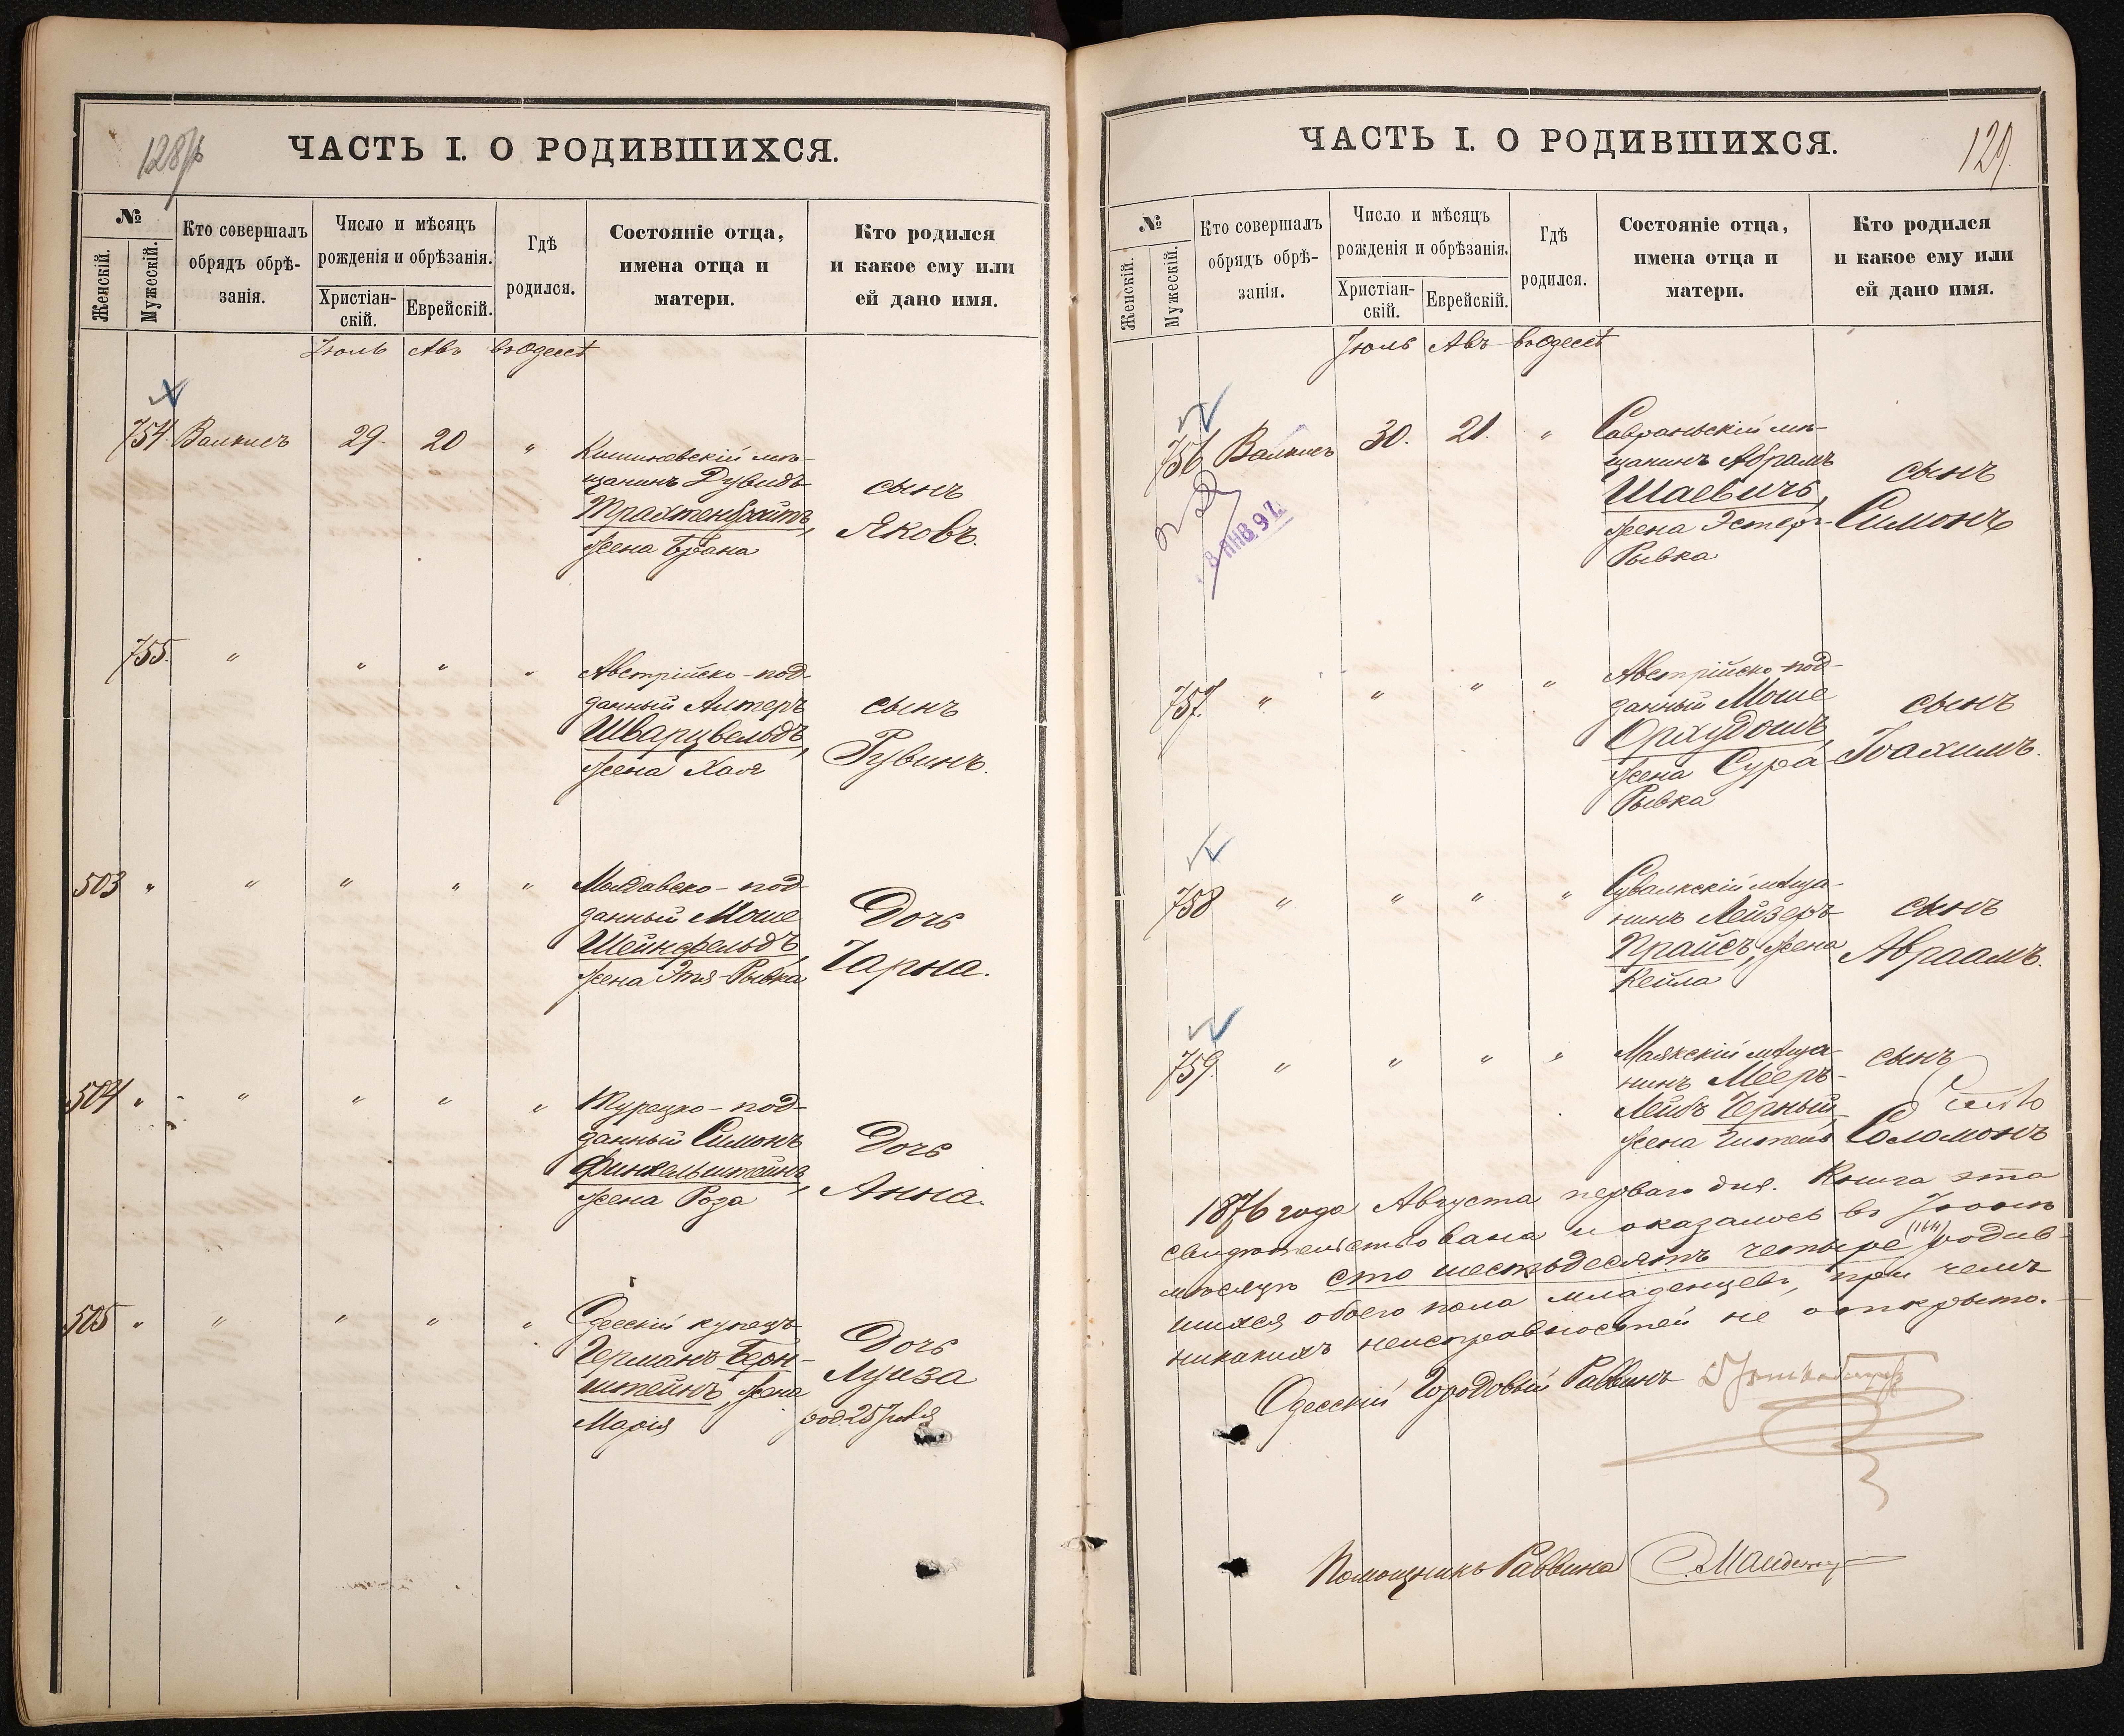 128
ЧАСТЬ I. О РОДИВШИХСЯ.
№
Женскій.
Мужескій.
Кто совершалъ
обрядъ обрѣ-
занія.
Число и мѣсяцъ
рожденія и обрѣзанія.
Христіан-
скій.
Еврейскій.
Гдѣ
родился.
Состояніе отца,
имена отца и
матери.
Кто родился
и какое ему или
ей дано имя.
Іюль Авъ въ Одессѣ
754. 29. 20 "
Кишиневскій мѣ-
щанинъ Дувидъ
Трахтенбройтъ,
жена Брана
сынъ
Яковъ.
755. " " " "
Австрійско-под-
данный Алтеръ
Шварцвельдъ,
жена Хая
сынъ
Рувинъ.
503 " " " " "
Молдавско-под-
данный Моше
Шейнфельдъ,
жена Этя-Рывка
Дочь
Чарна.
504 " " " " "
Турецко-под-
данный Симонъ
Финкельштейнъ,
жена Роза
Дочь
Анна.
505 " " " " "
Одесскій купецъ
Германъ Берн-
штейнъ, жена
Марія
Дочь
Луиза
род. 25 Іюля
129.
ЧАСТЬ I. О РОДИВШИХСЯ.
№
Женскій.
Мужескій.
Кто совершалъ
обрядъ обрѣ-
занія.
Число и мѣсяцъ
рожденія и обрѣзанія.
Христіан-
скій.
Еврейскій.
Гдѣ
родился.
Состояніе отца,
имена отца и
матери.
Кто родился
и какое ему или
ей дано имя.
Іюль Авъ въ Одессѣ
756 30. 21. "
ЯНВ 97
Савраньскій мѣ-
щанинъ Абрамъ
Шаевичъ,
жена Эстеръ-
Рывка
сынъ
Симонъ
757. " " " "
Австрійско-под-
данный Моше
жена Сура
Рывка
сынъ
Іоахимъ.
758 " " " "
Сувалкскій мѣща-
нинъ Лейзеръ
Прайсъ, жена
Кейла
сынъ
Авраамъ.
759. " " " "
Маякскій мѣща-
нинъ Мееръ-
Лейбъ Черный,
жена Гитель
сынъ
Соломонъ
1876 года Августа перваго дня. Книга эта
свидѣтельствована и оказалось въ Іюлѣ
мѣсяцѣ сто шестьдесятъ четыре (164) родив-
шихся обоего пола младенцевъ, при чемъ
никакихъ неисправностей не открыто.
Одесскій Городовый Раввинъ
Помощникъ Раввина